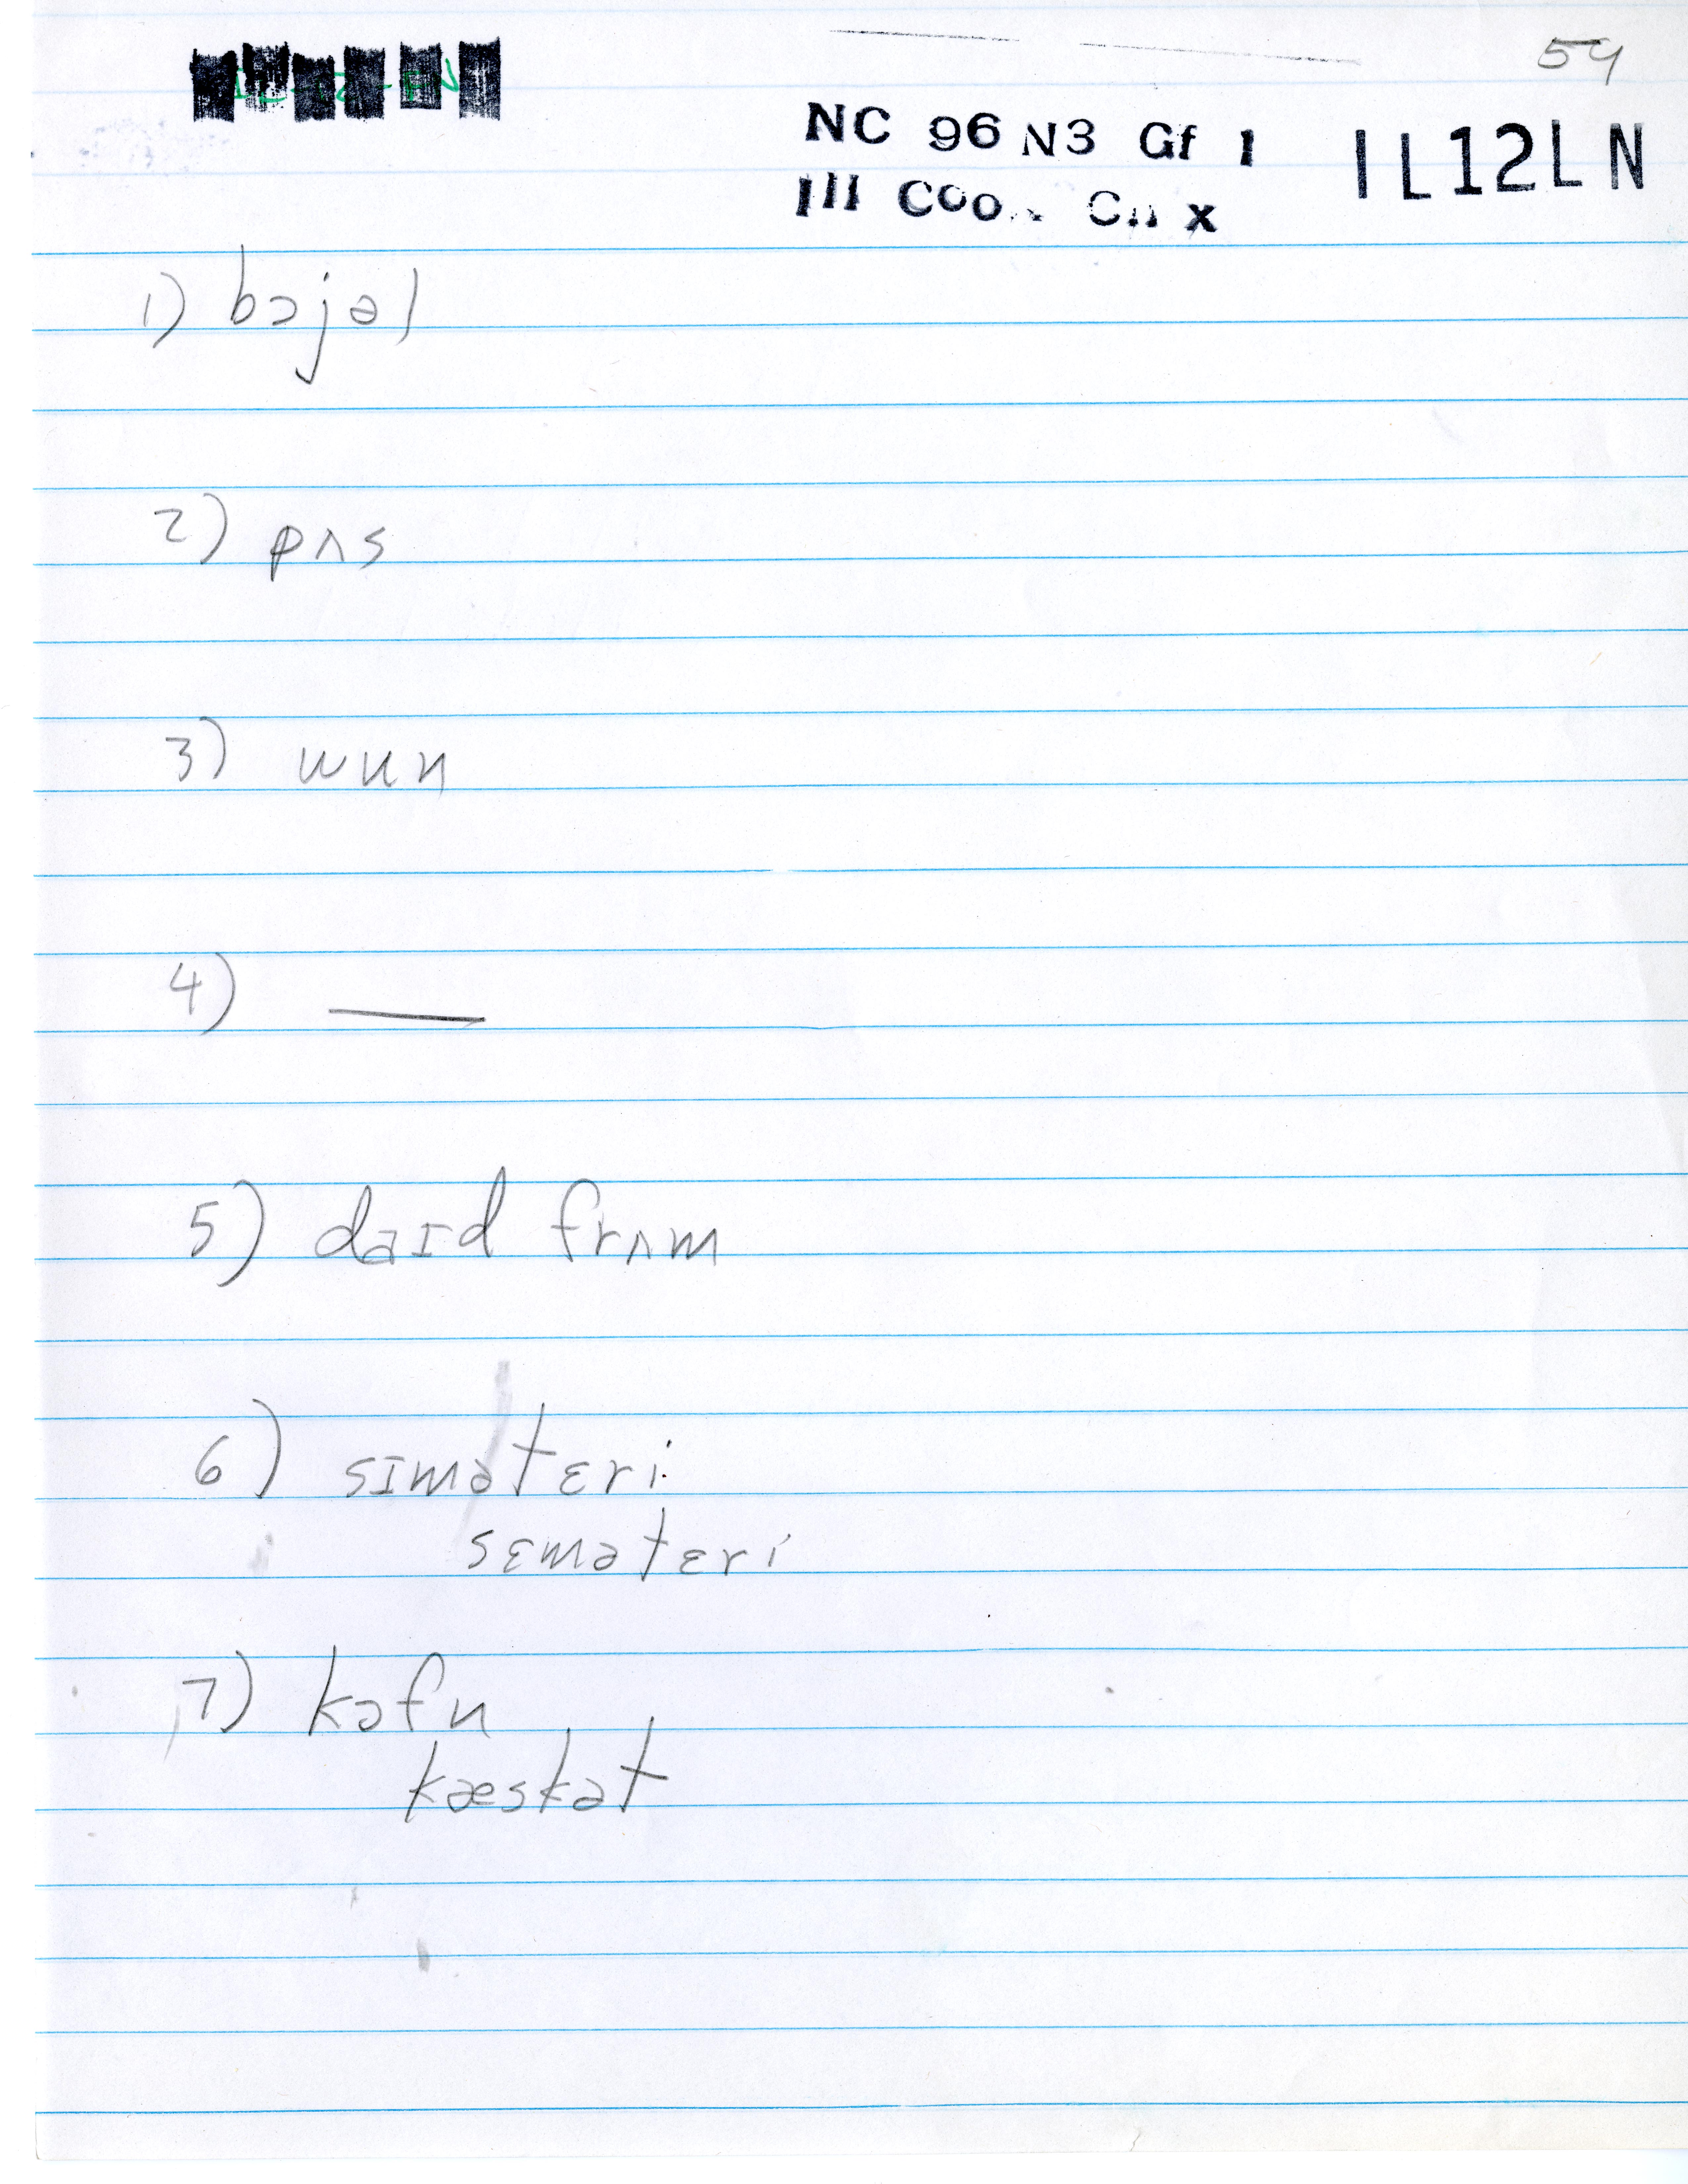 54
NC 96 N3 Gf 1
IL12LN
Ill
1) bɔjəl
2) pʌs
3) wun
4) —
5) daɪd frʌm
6) sɪmətɛri
sɛmətɛri
7) kɔfn
kæskət